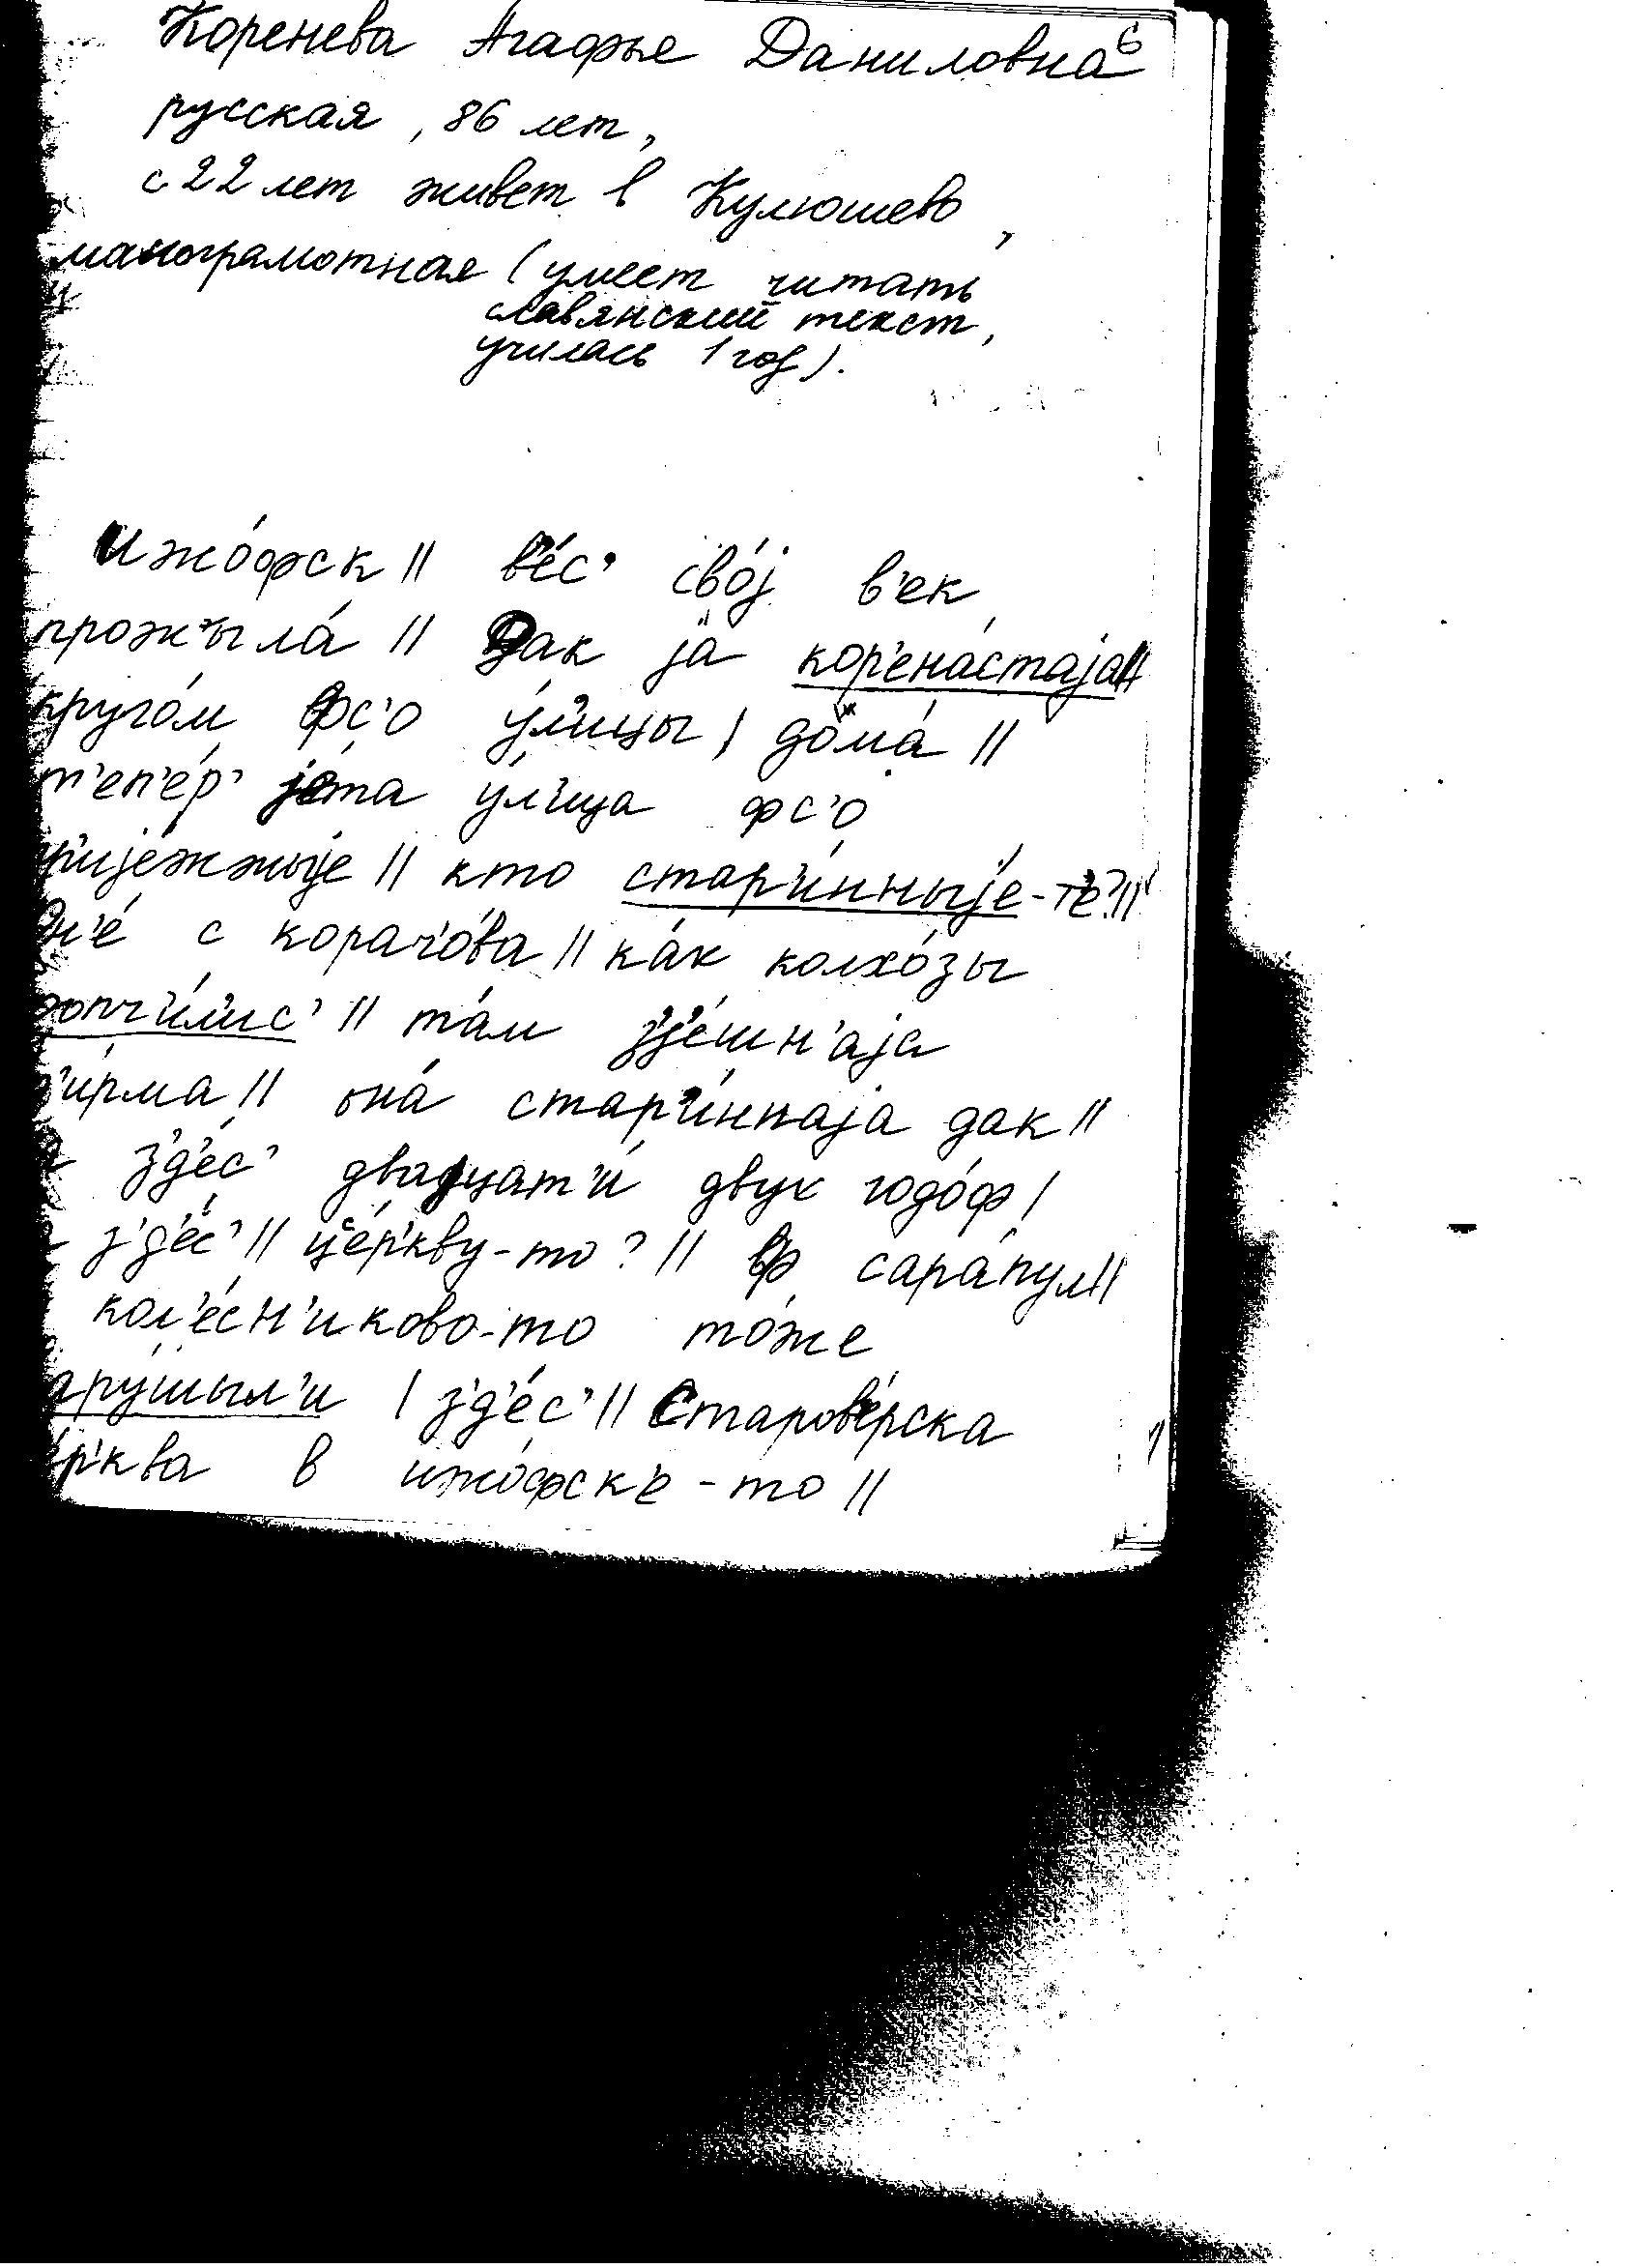 6
Коренева Агафье Даниловна
русская, 86 лет,
с 22 лет живет в Кулюшево,
малограмотная (умеет читать
славянский текст,
училась 1 год).
ижо́фск || в'е́с' сво́j в'ек
прожыла́ || дак jа́ кор'ена́стаjа ||
круго́м фс'о у́л'ицы | дома́ ||
т'еп'е́р' jе́та у́л'ица фс'о
кто стар'и́нныjе-т'е? ||
с корач'о́ва || ка́к колхо́зы
та́м з'д'е́шн'аjа
она́ стар'и́ннаjа дак ||
з'д'е́с' двадцат'и́ двух годо́ф |
з'д'е́с' || це́р'кву-то? || ф сара́пул ||
кол'е́сн'иково-то то́же
| з'д'е́с' || старов'е́рска
в ижо́фск'е-то ||